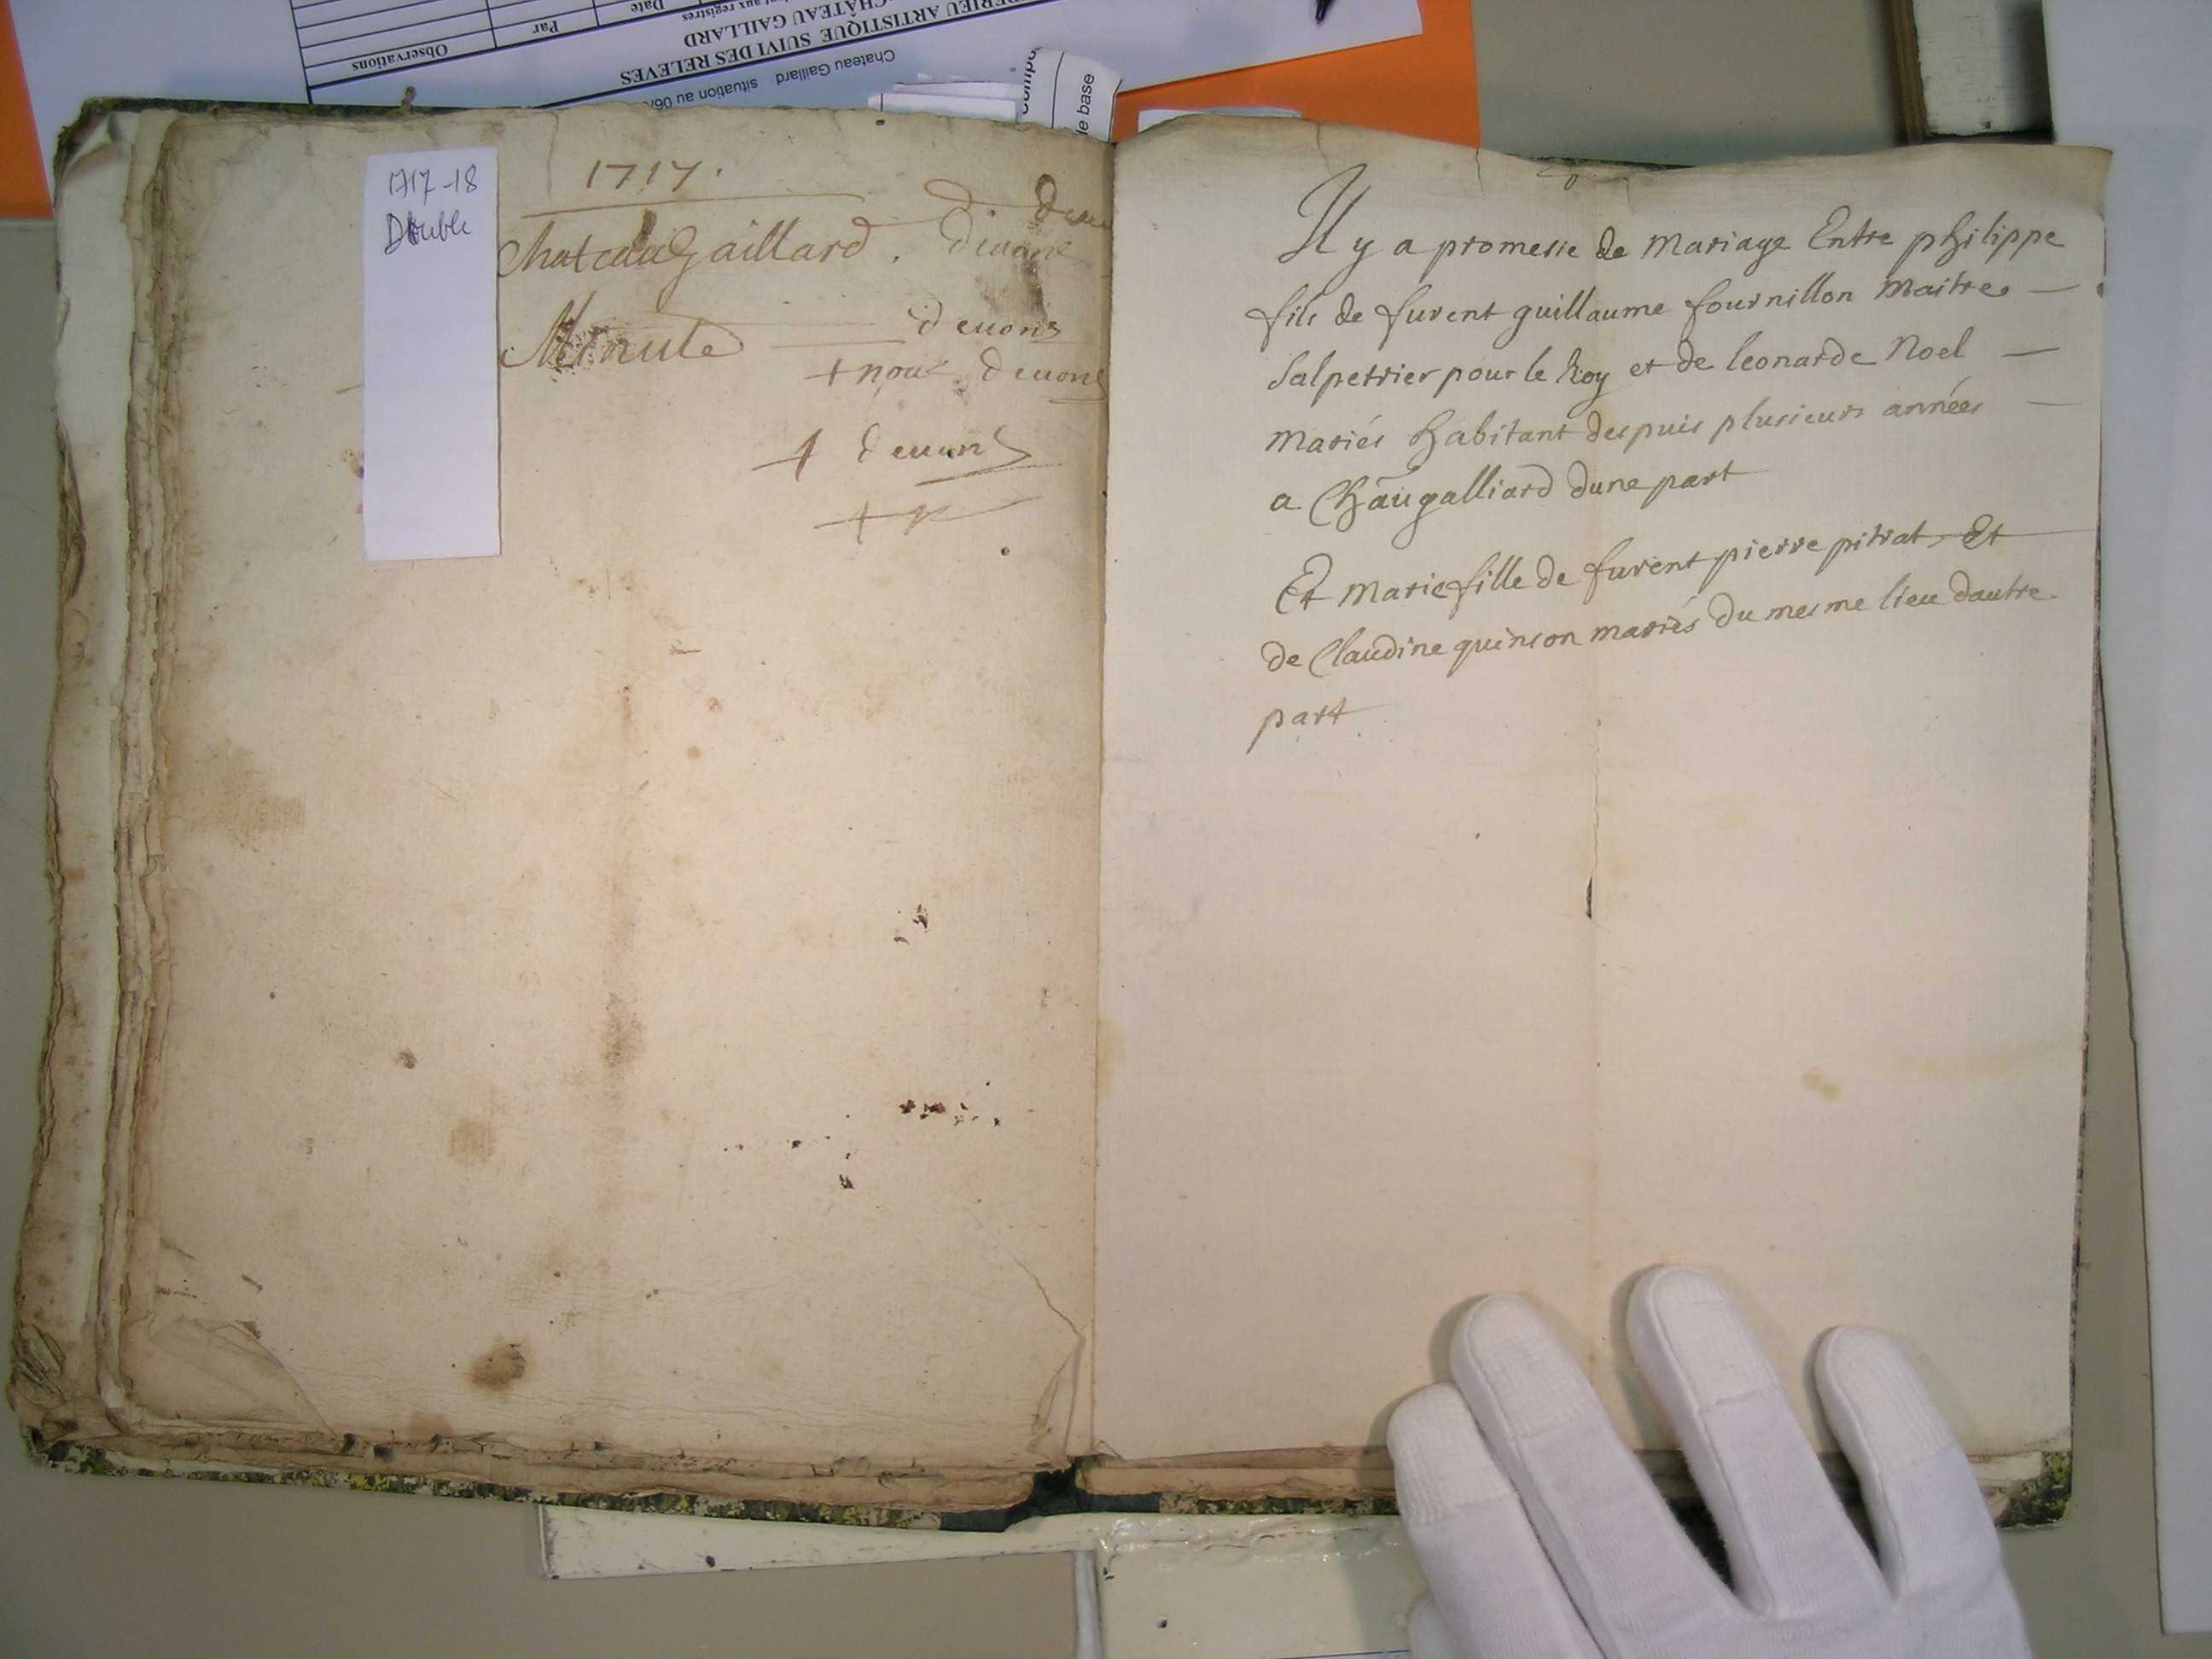 Observations
Par
Date
aux registres
CHÂTEAU GAILLARD
ARTISTIQUE SUIVI DES RELEVES
Chateau Gaillard situation au 06
de base
1717-18
Double
1717.
Chateaugaillard. deuons
Minute deuons
+ nous deuons
+ deuons
Il y a promesse de Mariage Entre philippe
fils de furent guillaume fournillon Maitre
Salpetrier pour le Roy et de leonarde Noel
Mariés habitant despuis plusieurs années
a Chaûgalliard dune part
Et Marie fille de furent pierre pitrat Et
de Claudine quinson mariés du mesme lieu dautre
part